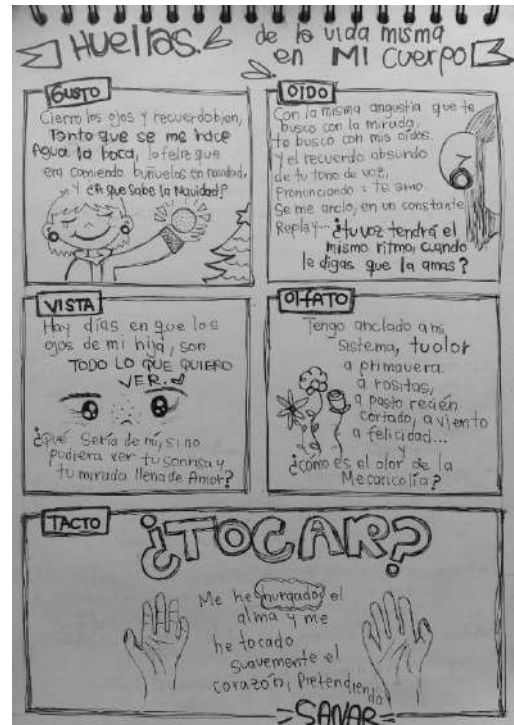 Huellas. de la vida misma
en MI cuerpo
GUSTO
Cierro los ojos y recuerdo bien,
Tanto que se me hace
Agua la boca, lo feliz que
era comiendo buñuelos en navidad,
Y ¿A que sabe la Navidad?
OIDO
Con la misma angustia que te
busco con la mirada,
te busco con mis oidos.
Y el recuerdo absurdo
de tu tono de voz,
Pronunciando: te amo.
Se me ancló, en un constante
Replay... ¿tu voz tendrá el
mismo ritmo, cuando
le digas que la amas?
VISTA
Hay días en que los
ojos de mi hija, son
TODO LO QUE QUIERO
VER.
¿Qué sería de mi, si no
pudiera ver tu sonrisa y
tu mirada llena de Amor?
OLFATO
Tengo anclado a mi
sistema, tu olor
a primavera.
a rositas,
a pasto recién
cortado, a viento
a felicidad...
y
¿cómo es el olor de la
Melancolía?
TACTO
¿TOCAR?
Me he hurgado el
alma y me
he tocado
suavemente el
corazón, Pretendiendo
SANAR